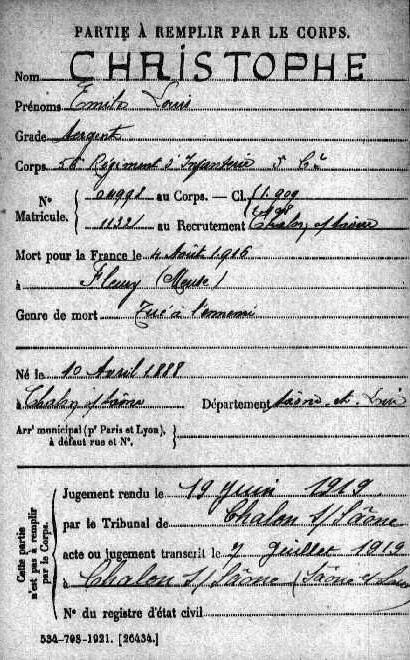 PARTIE À REMPLIR PAR LE CORPS.
Nom CHRISTOPHE
Prénoms Emile Louis
Grade Sergent
Corps 56e Régiment d'Infanterie 5 Cie
N° Matricule. 04998 au Corps. — Cl. 1.909
1908
11321 au Recrutement Chalon s/ Saône
Mort pour la France le 4 Août 1916
à Fleury (Meuse)
Genre de mort Tué à l'ennemi
Né le 10 Avril 1888
à Chalon s/ Saône Département Saône-et-Loire
Arrt municipal (pr Paris et Lyon), à défaut rue et N°.
Cette partie n'est pas à remplir par le Corps.
Jugement rendu le 19 Juin 1919
par le Tribunal de Chalon s/ Saône
acte ou jugement transcrit le 7 Juillet 1919
à Chalon s/ Saône (Saône et Loire)
N° du registre d'état civil
534-708-1921. [26434.]